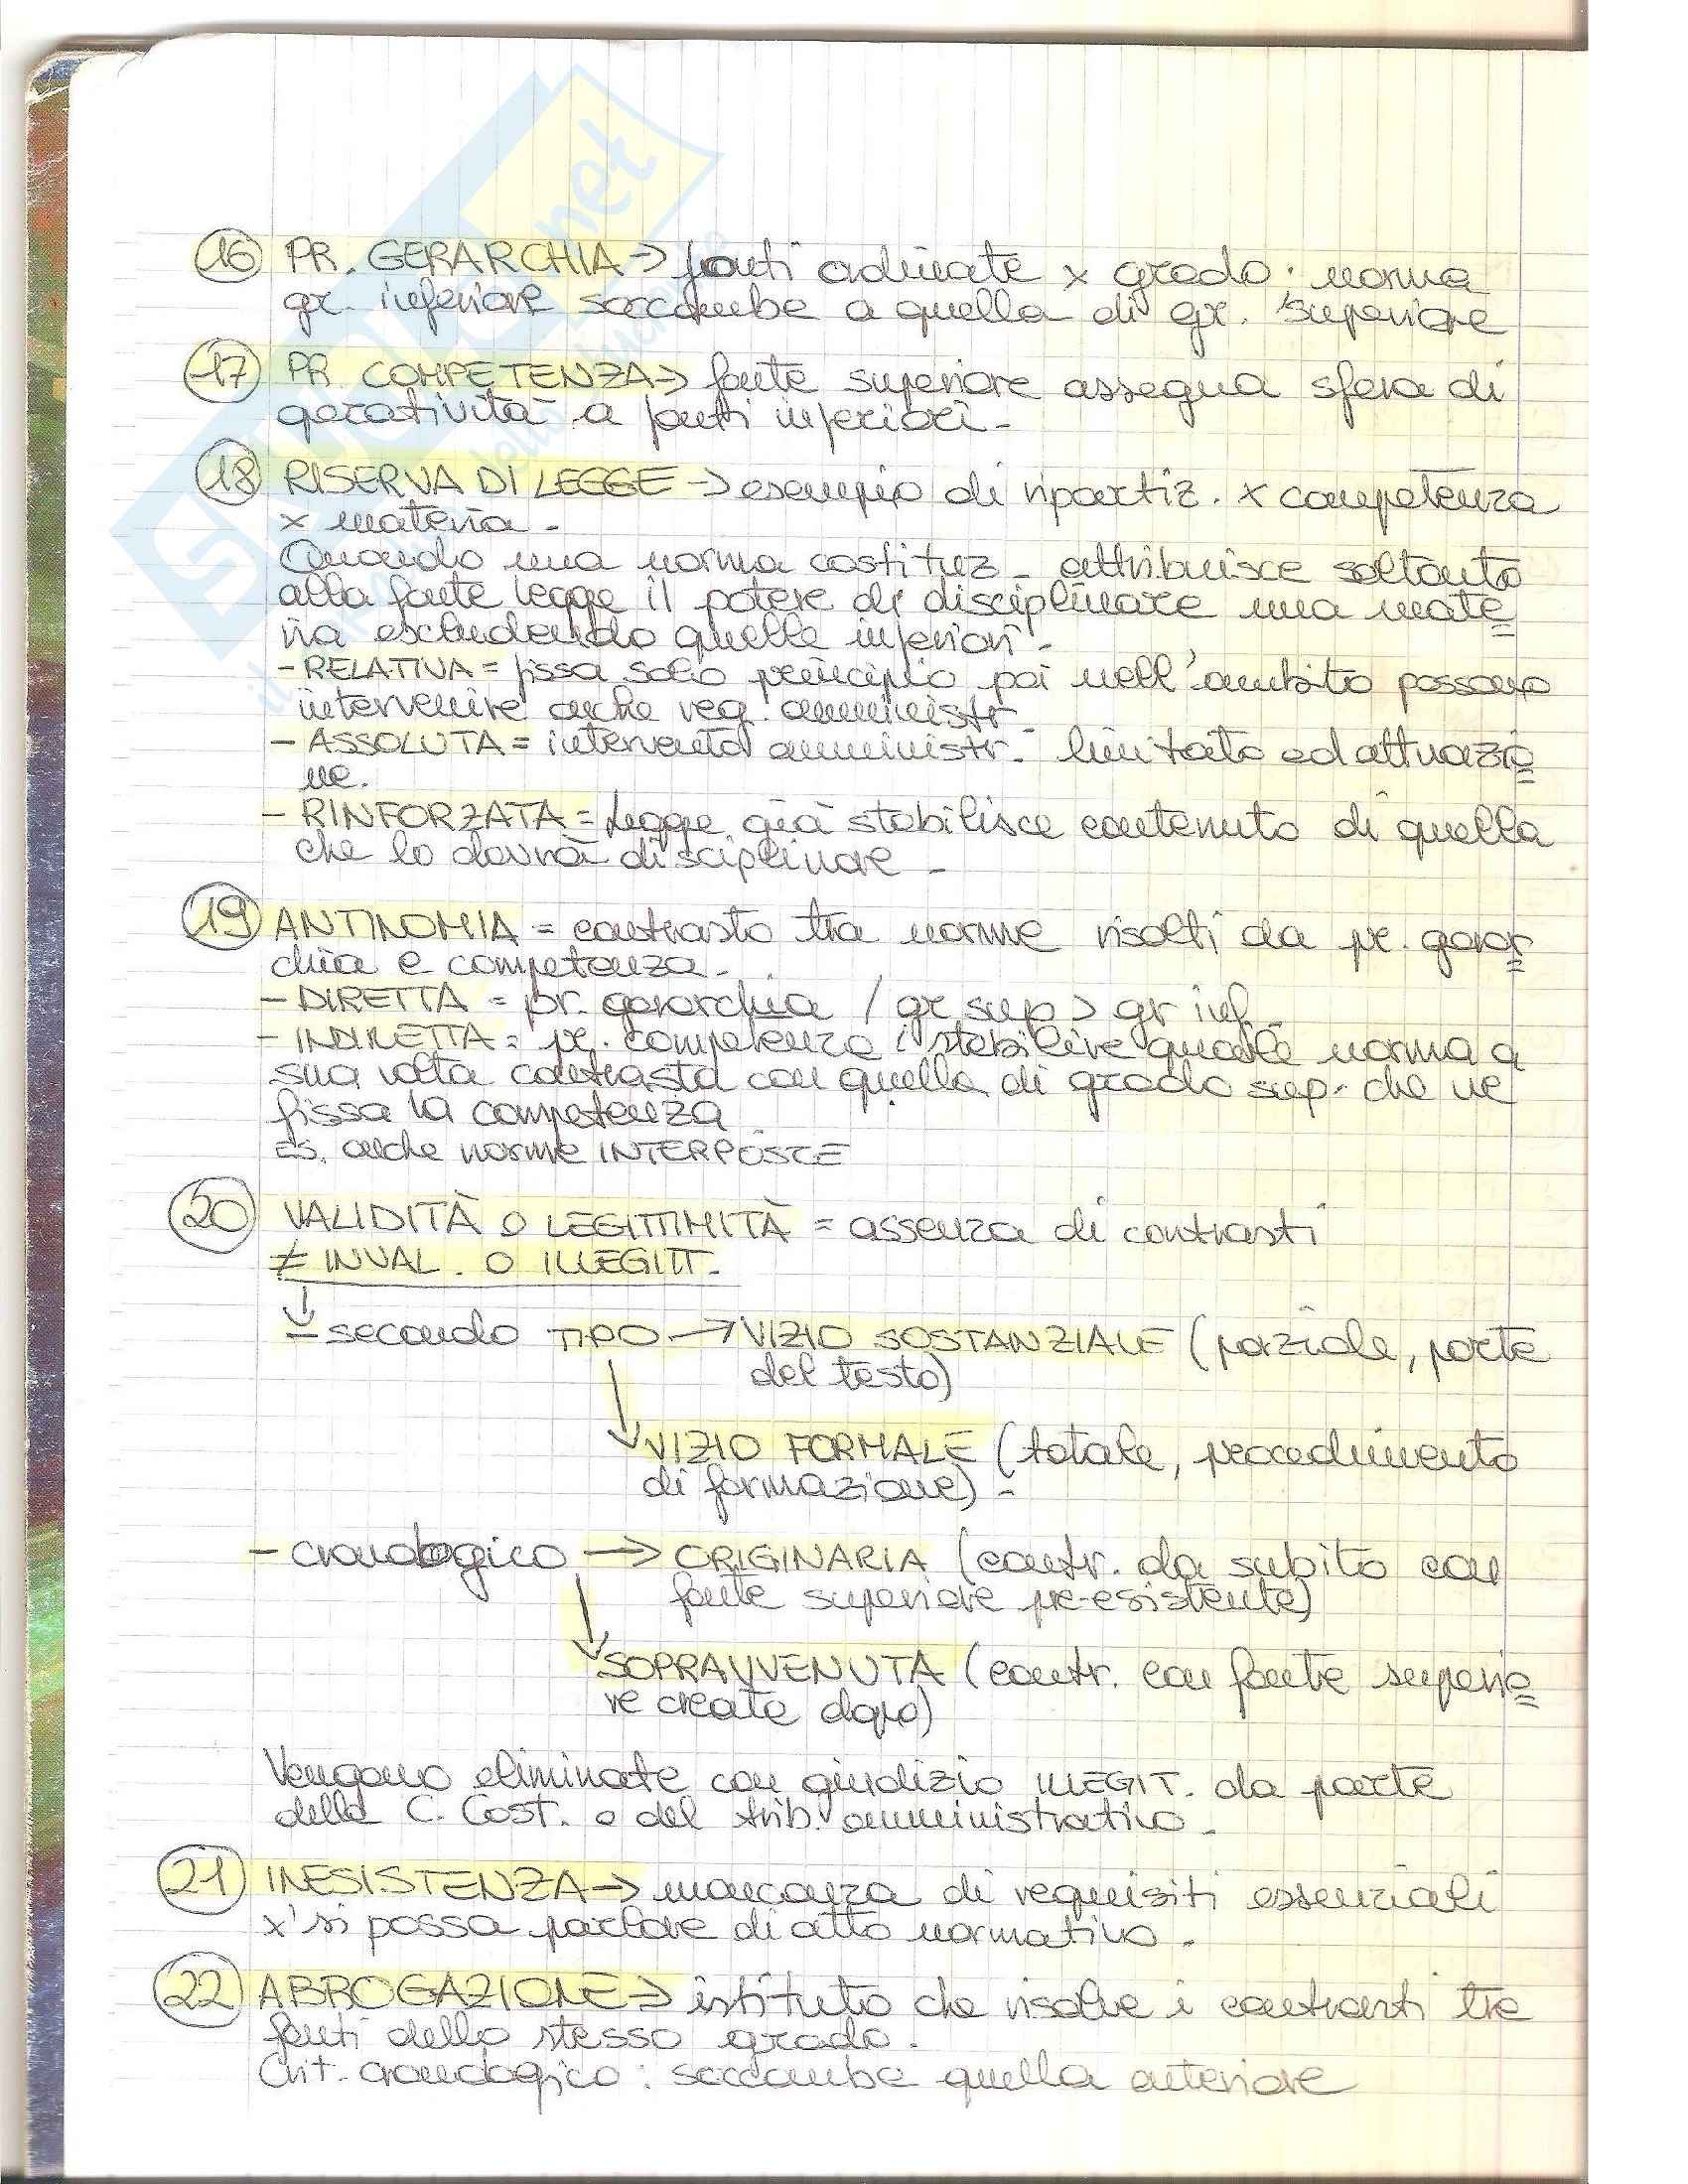 16 PR. GERARCHIA → fonti ordinate x grado: norma
gr. inferiore soccombe a quella di gr. superiore
17 PR. COMPETENZA → fonte superiore assegna sfera di
operatività a fonti inferiori -
18 RISERVA DI LEGGE → esempio di ripartiz. x competenza
x materia -
Quando una norma costituz - attribuisce soltanto
alla fonte legge il potere di disciplinare una mate=
ria escludendo quelle inferiori -
- RELATIVA = fissa solo principio poi nell'ambito possono
intervenire anche reg. amministr.
- ASSOLUTA = intervento amministr. limitato ad attuazio=
ne.
- RINFORZATA = Legge già stabilisce contenuto di quella
che lo dovrà disciplinare -
19 ANTINOMIA = contrasto tra norme risolti da pr. gerar=
chia e competenza -
- DIRETTA = pr. gerarchia / gr sup > gr inf -
- INDIRETTA = pr. competenza: stabilire quale norma a
sua volta contrasta con quella di grado sup. che ne
fissa la competenza
ES. anche norme INTERPOSTE
20 VALIDITÀ O LEGITTIMITÀ = assenza di contrasti
≠ INVAL. O ILLEGITT.
↓
- secondo TIPO → VIZIO SOSTANZIALE (parziale, parte
del testo)
↓ VIZIO FORMALE (totale, procedimento
di formazione) -
- cronologico → ORIGINARIA (contr. da subito con
fonte superiore pre-esistente)
↓ SOPRAVVENUTA (contr. con fonte superio=
re create dopo)
Vengono eliminate con giudizio ILLEGIT. da parte
della C. Cost. o del trib. amministrativo -
21 INESISTENZA → mancanza di requisiti essenziali
x' si possa parlare di atto normativo -
22 ABROGAZIONE → istituto che risolve i contrasti tra
fonti dello stesso grado.
Crit. cronologico: soccombe quella anteriore